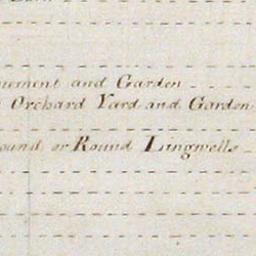 and Garden
Orchard Yard and Garden
or Round Lingwells